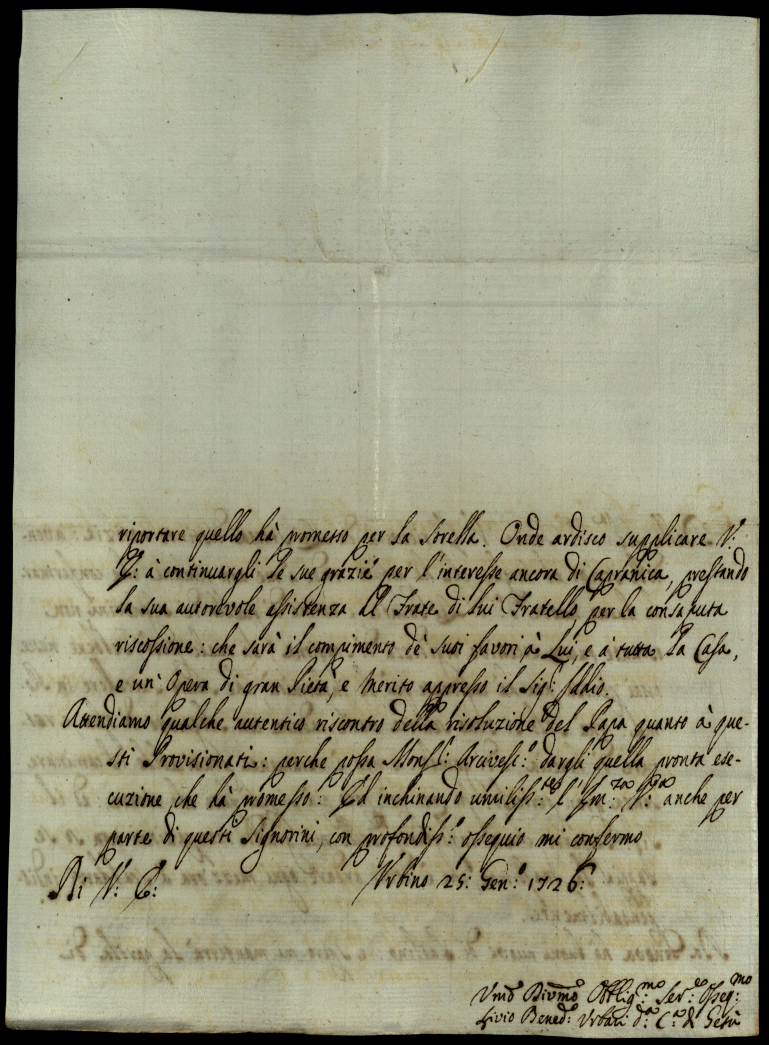 riportare quello hà promesso per la sorella. Onde ardisco supplicare V:
E: à continuargli le sue grazie per l'interesse ancora di Capranica, prestando
la sua autorevole assistenza al Frate di lui Fratello, per la consaputa
riscossione: che sarà il compimento de' suoi favori à Lui, e à tutta la Casa,
e un' Opera di gran Pietà, e Merito appresso il Sig: Iddio.
Attendiamo qualche autentico riscontro della risoluzione del Papa quanto à que-
sti Provisionati: perche possa Mons:r Arcivesc:o dargli quella pronta ese-
cuzione, che hà promesso: Ed inchinando umiliss:te l' Em:za V:ra anche per
parte di questi Signorini, con profondiss:o ossequio mi confermo
Di V: E: Urbino 25: Gen:o 1726:
Umo Divmo Obblig:mo Ser:re Osseq:mo
Livio Bened:o Urbani d:a C:a di Gesù